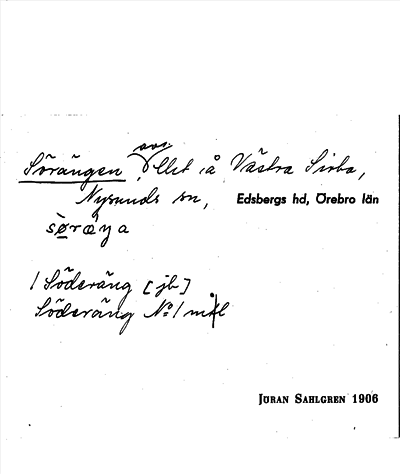 Sörängen, avs. på Västra Sirba,
Nysunds sn, Edsbergs hd, Örebro län
sø̀ræŋa
/ Söderäng [jb]
Söderäng No 1 mtl
JÖRAN SAHLGREN 1906